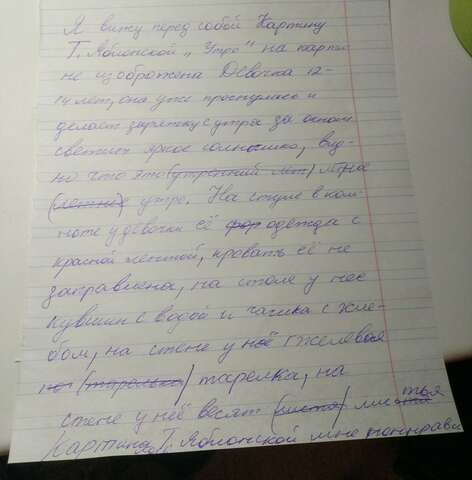 Я вижу перед собой Картину
Т. Яблонской „Утро" на карти
не изображена Девочка 12-
14 лет, она уже проснулась и
делает зарятку с утра за окном
светит яркое солнышко, вид-
но что это (утренний лет)
(летнее) утро. На стуле в ком-
ноте у девочки её фор одежда с
красной лентой, кровать её не
заправлена, на столе у нее
кувшин с водой и чашка с хле-
бом, на стене у неё гжелевая
(тарелка) тарелка, на
стене у неё весят (листя) листья
Картина Т. Яблонской мне понрави